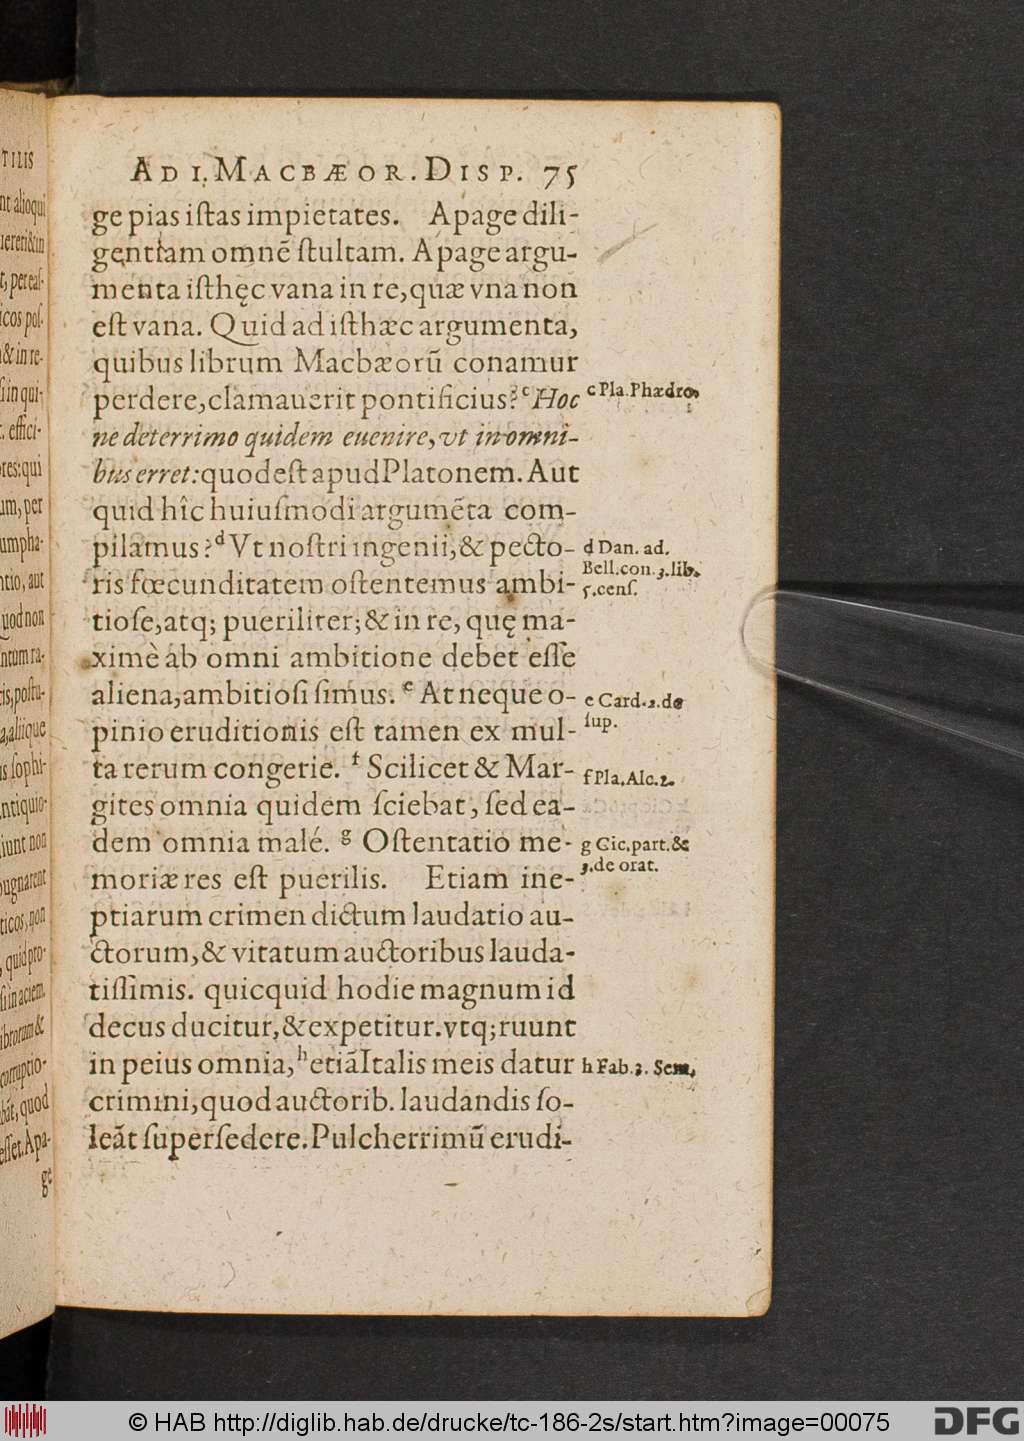 AD I. MACBÆOR. DISP. 75
ge pias iſtas impietates. Apage dili-
gentiam omnē ſtultam. Apage argu-
menta iſthęc vana in re, quæ vna non
eſt vana. Quid ad iſthæc argumenta,
quibus librum Macbæorū conamur
perdere, clamauerit pontificius? ᶜ Hoc
ne deterrimo quidem euenire, vt in omni-
bus erret: quod eſt apud Platonem. Aut
quid hîc huiuſmodi argumēta com-
pilamus? ᵈ Vt noſtri ingenii, & pecto-
ris fœcunditatem oſtentemus ambi-
tioſe, atq; pueriliter; & in re, quę ma-
ximè ab omni ambitione debet eſſe
aliena, ambitioſi ſimus. ᵉ At neque o-
pinio eruditionis eſt tamen ex mul-
ta rerum congerie. ᶠ Scilicet & Mar-
gites omnia quidem ſciebat, ſed ea-
dem omnia malé. ᵍ Oſtentatio me-
moriæ res eſt puerilis. Etiam ine-
ptiarum crimen dictum laudatio au-
ctorum, & vitatum auctoribus lauda-
tiſſimis. quicquid hodie magnum id
decus ducitur, & expetitur. vtq; ruunt
in peius omnia, ʰ etiā Italis meis datur
crimini, quod auctorib. laudandis ſo-
leāt ſuperſedere. Pulcherrimū erudi-
c Pla. Phædro.
d Dan. ad.
Bell. con. 3. lib.
5. cenſ.
e Card. 2. de
ſup.
f Pla. Alc. 2.
g Cic. part. &
3. de orat.
h Fab. 3. Sem.
TILIS
nt alioqui
t, per eaſ-
icos poſ-
& in re-
ſi in qui-
. effici-
res: qui
um, per
umpha-
ntio, aut
quod non
ntum ra-
tis, poſtu-
a, aliique
is ſophi-
ntiquio-
iunt non
pugnarent
ticos, non
, quid pro-
ſi in aciem,
ibrorum &
corruptio-
bāt, quod
eſſet. Apa-
ge
© HAB http://diglib.hab.de/drucke/tc-186-2s/start.htm?image=00075
DFG